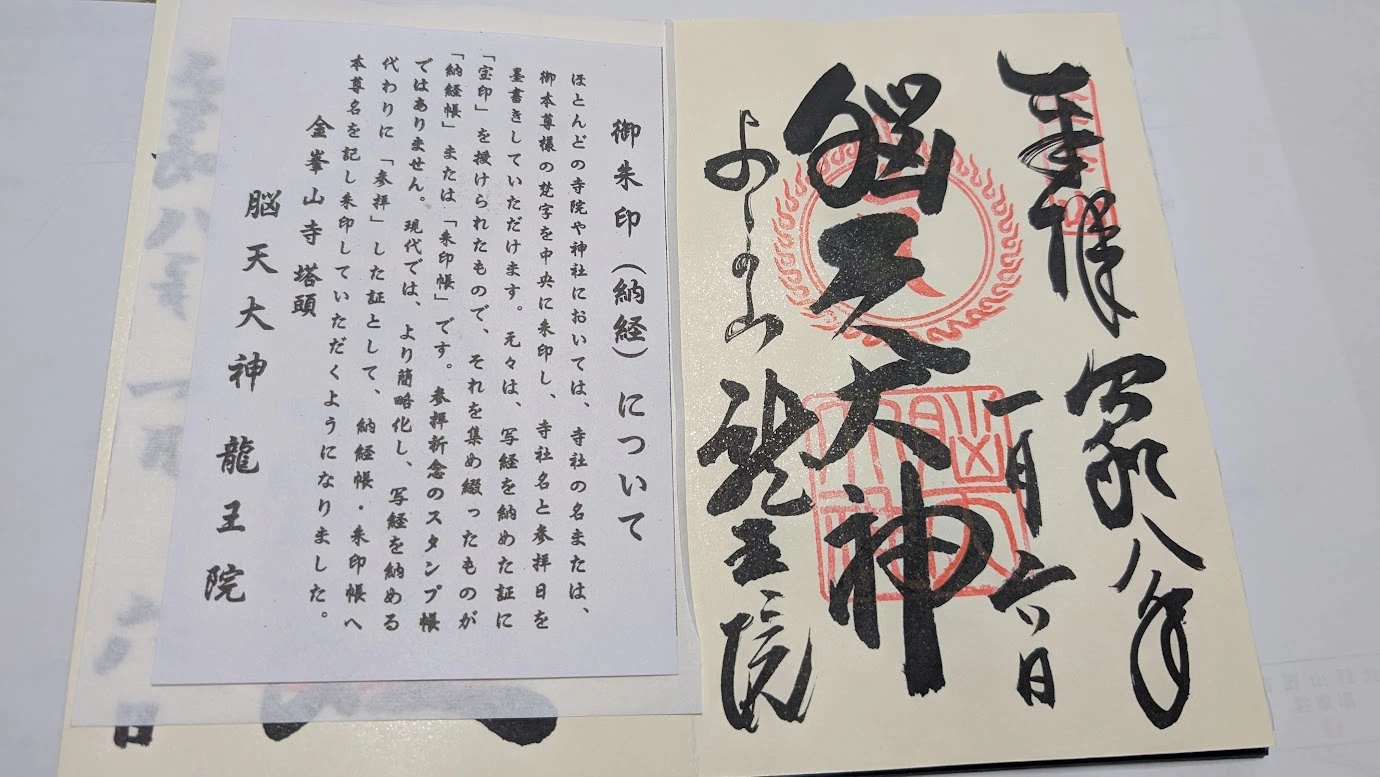 奉拝
令和八年
一月六日
脳天大神
よしの山
龍王院
御朱印（納経）について
ほとんどの寺院や神社においては、寺社の名または、
御本尊様の梵字を中央に朱印し、寺社名と参拝日を
墨書きしていただけます。元々は、写経を納めた証に
「宝印」を授けられたもので、それを集め綴ったものが
「納経帳」または「朱印帳」です。参拝祈念のスタンプ帳
ではありません。現代では、より簡略化し、写経を納める
代わりに「参拝」した証として、納経帳・朱印帳へ
本尊名を記し朱印していただくようになりました。
金峯山寺 塔頭
脳天大神 龍王院